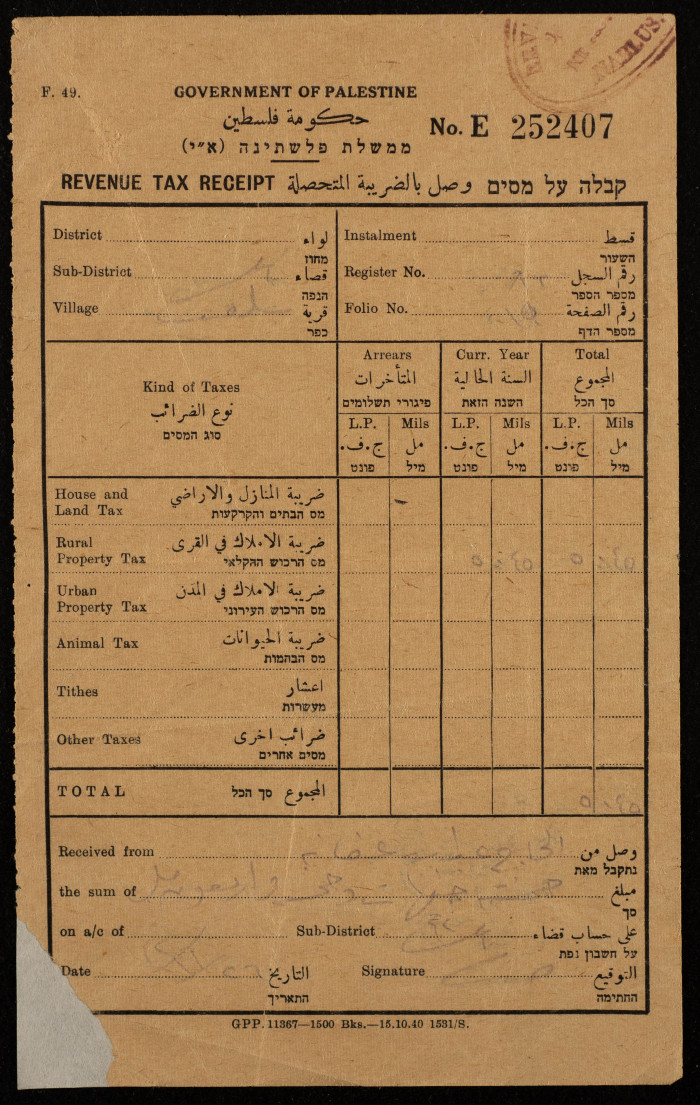 NABLUS.
F. 49.
GOVERNMENT OF PALESTINE
حكومة فلسطين
ממשלת פלשתינה (א״י)
No. E 252407
REVENUE TAX RECEIPT وصل بالضريبة المتحصلة קבלה על מסים
District لواء
מחוז
Sub-District قضاء
הנפה
Village قرية
כפר
Instalment قسط
השעור
Register No. رقم السجل
מספר הספר
Folio No. رقم الصفحة
מספר הדף
Kind of Taxes
نوع الضرائب
סוג המסים
Arrears
المتأخرات
פיגורי תשלומים
Curr. Year
السنة الحالية
השנה הזאת
Total
المجموع
סך הכל
L.P. Mils L.P. Mils L.P. Mils
ج.ف. مل ج.ف. مل ج.ف. مل
פונט מיל פונט מיל פונט מיל
House and ضريبة المنازل والاراضي
Land Tax מס הבתים והקרקעות
Rural ضريبة الاملاك في القرى
Property Tax מס הרכוש החקלאי
Urban ضريبة الاملاك في المدن
Property Tax מס הרכוש העירוני
Animal Tax ضريبة الحيوانات
מס הבהמות
Tithes اعشار
מעשרות
Other Taxes ضرائب اخرى
מסים אחרים
TOTAL סך הכל المجموع
Received from وصل من
נתקבל מאת
the sum of مبلغ
סך
on a/c of Sub-District على حساب قضاء
על חשבון נפת
Date التاريخ Signature التوقيع
התאריך החתימה
GPP. 11367—1500 Bks.—15.10.40 1531/S.